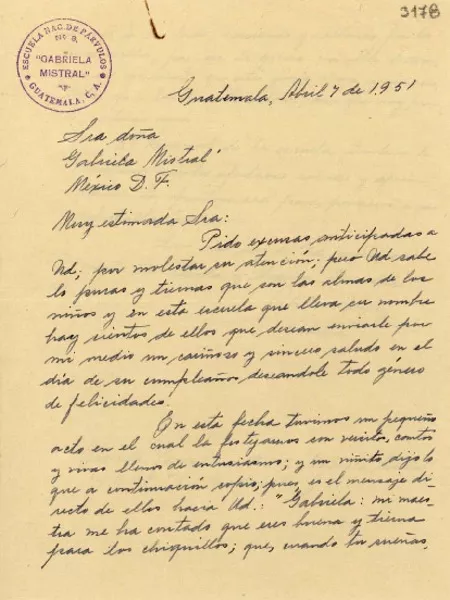 3178
ESCUELA NAC. DE PÁRVULOS
No 3,
"GABRIELA
MISTRAL"
GUATEMALA, C. A.
Guatemala, Abril 7 de 1951
Sra doña
Gabriela Mistral
México D. F.
Muy estimada Sra:
Pido excusas anticipadas a
Ud; por molestar su atención; pero Ud sabe
lo puras y tiernas que son las almas de los
niños y en esta escuela que lleva su nombre
hay cientos de ellos que desean enviarle por
mi medio un cariñoso y sincero saludo en el
día de su cumpleaños deseandole todo género
de felicidades.
En esta fecha tuvimos un pequeño
acto en el cual la festejamos con versitos, cantos
y vivas llenos de entusiasmo; y un niñito dijo lo
que a continuación copio; pues, es el mensaje di
recto de ellos hacia Ud.: "Gabriela: mi maes
tra me ha contado que eres buena y tierna
para los chiquillos; que, cuando tu sueñas,